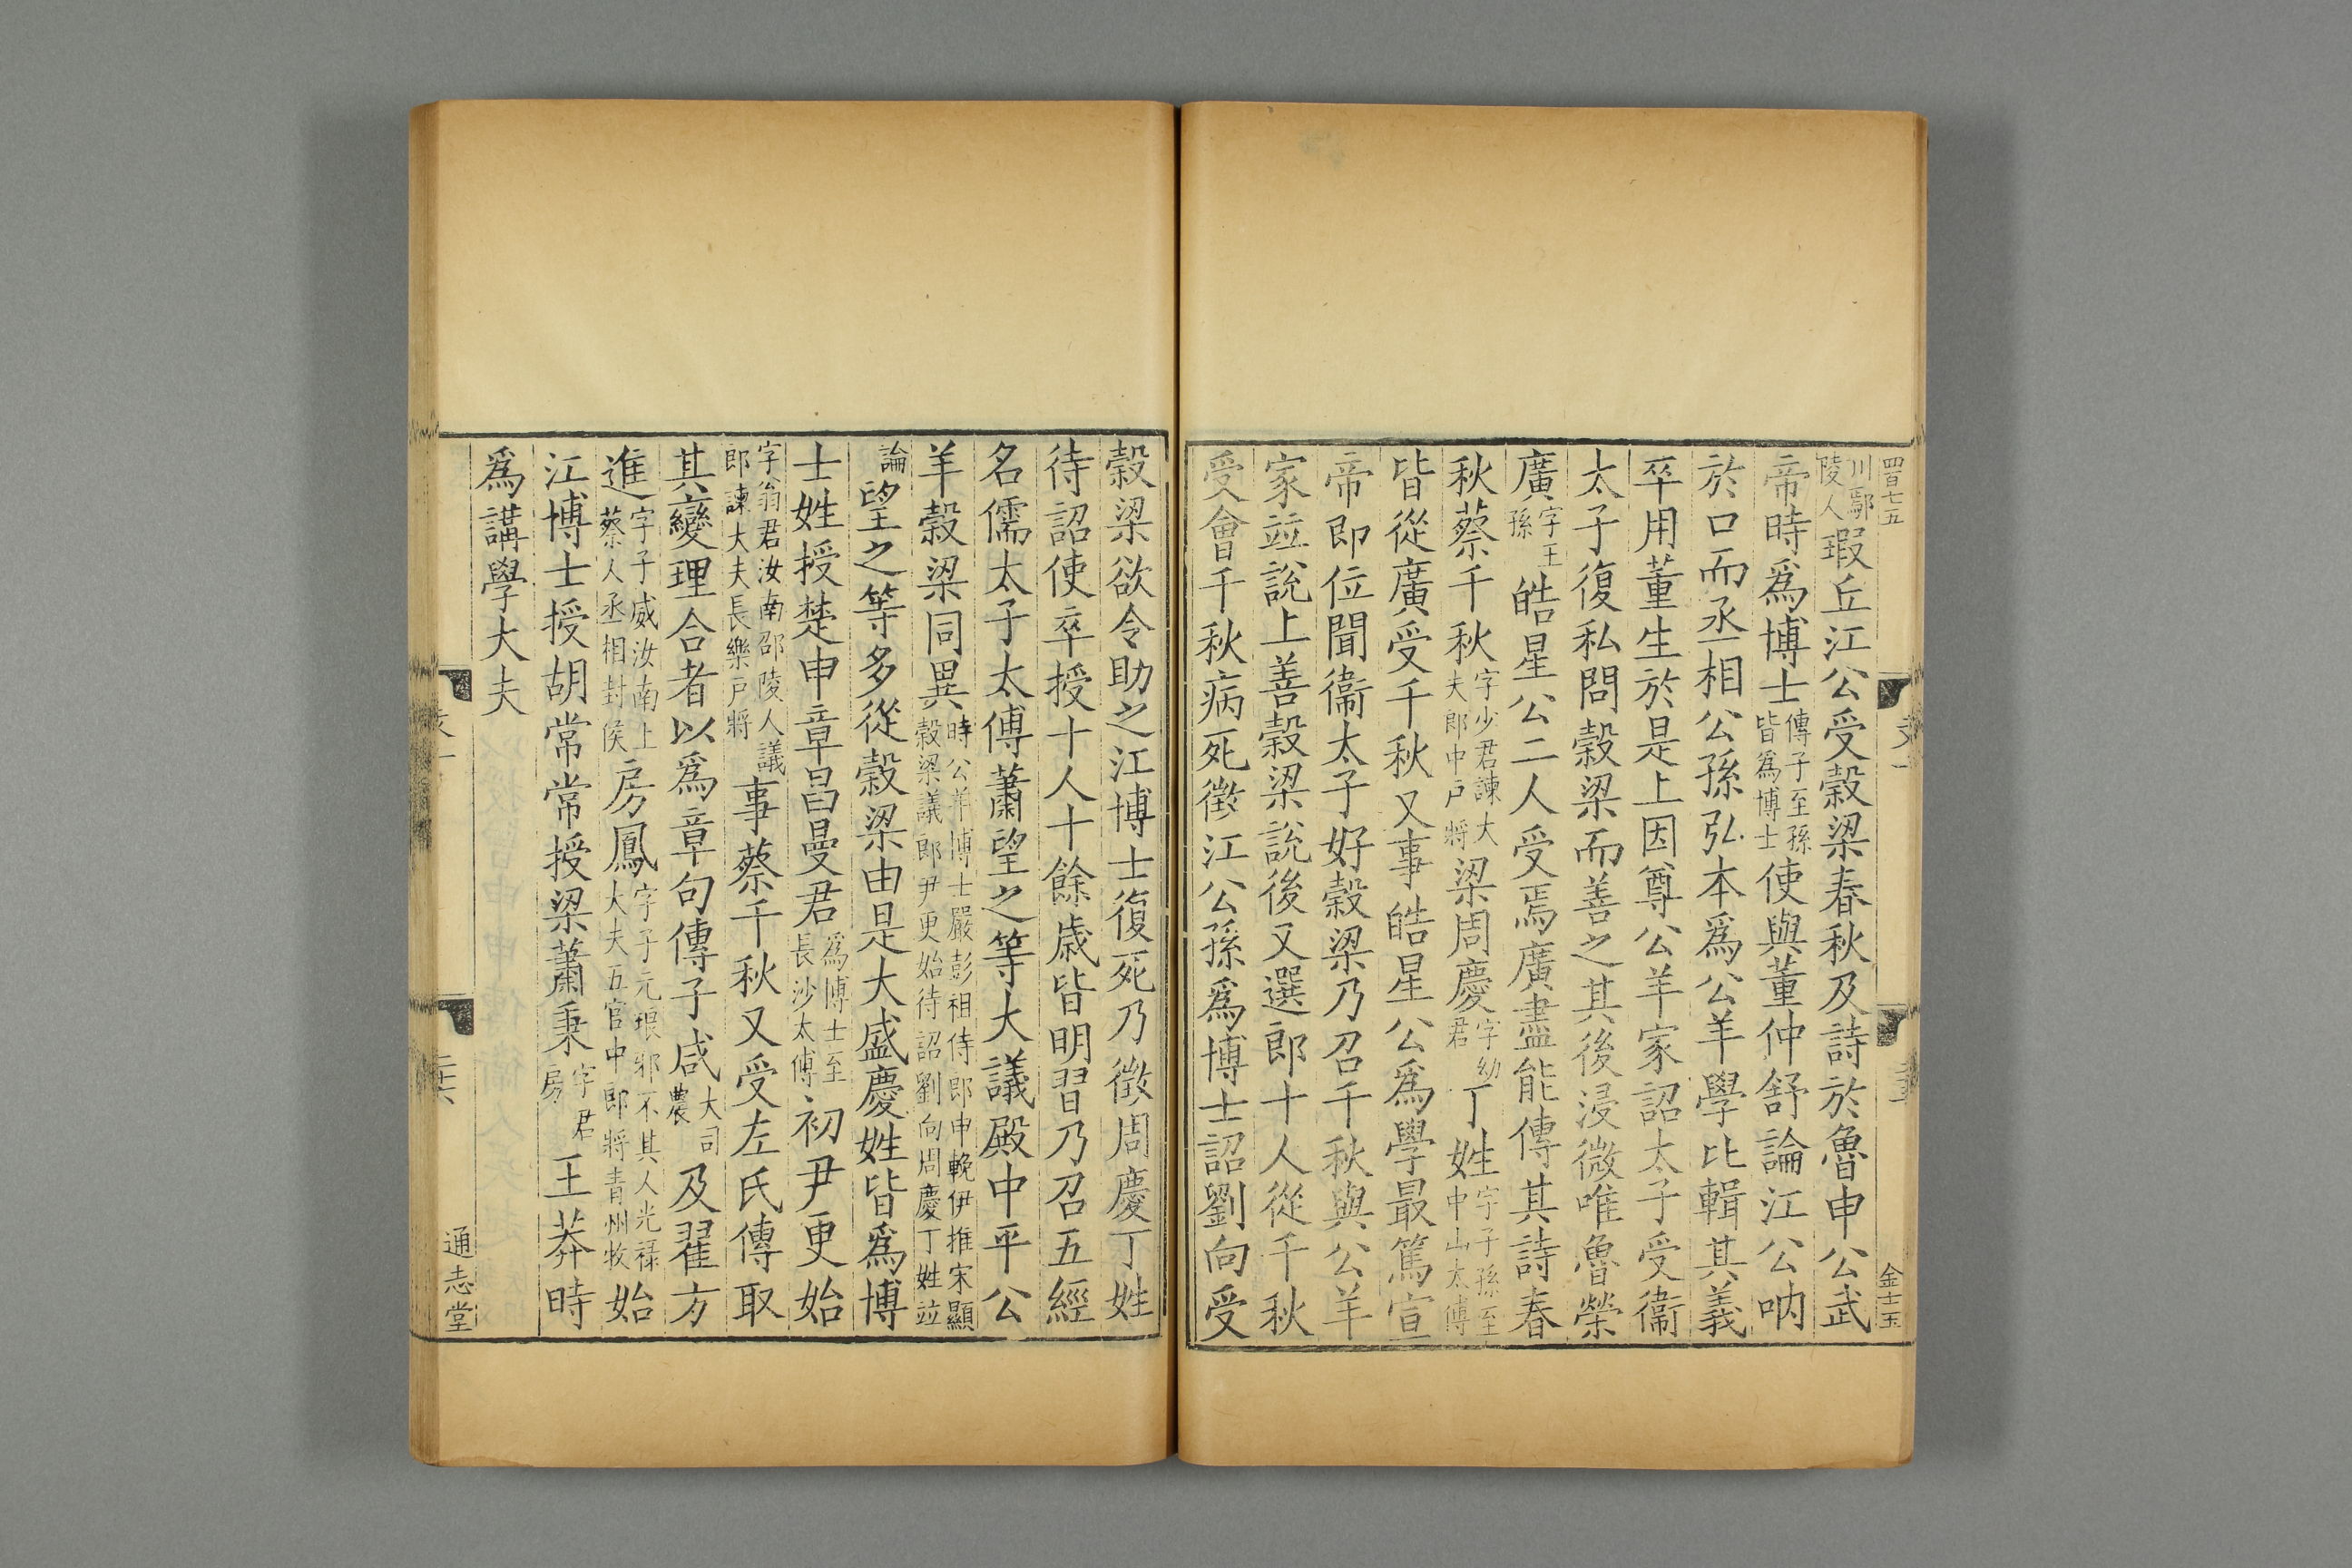 四百七五
金士玉
川鄢陵人瑕丘江公受穀梁春秋及詩於魯申公武
帝時爲博士傳子至孫皆爲博士使與董仲舒論江公吶
於口而丞相公孫弘本爲公羊學比輯其義
卒用董生於是上因尊公羊家詔太子受衞
太子復私問穀梁而善之其後浸微唯魯榮
廣字王孫皓星公二人受焉廣盡能傳其詩春
秋蔡千秋字少君諫大夫郎中戸將梁周慶字幼君丁姓字子孫至中山太傅
皆從廣受千秋又事皓星公爲學最篤宣
帝即位聞衞太子好穀梁乃召千秋與公羊
家竝說上善穀梁說後又選郎十人從千秋
受會千秋病死徵江公孫爲博士詔劉向受
穀梁欲令助之江博士復死乃徵周慶丁姓
待詔使卒授十人十餘歲皆明習乃召五經
名儒太子太傅蕭望之等大議殿中平公
羊穀梁同異時公羊博士嚴彭祖侍郎申輓伊推宋顯穀梁議郎尹更始待詔劉向周慶丁姓竝
論望之等多從穀梁由是大盛慶姓皆爲博
士姓授楚申章昌曼君爲博士至長沙太傅初尹更始
字翁君汝南邵陵人議郎諫大夫長樂戸將事蔡千秋又受左氏傳取
其變理合者以爲章句傳子咸大司農及翟方
進字子威汝南上蔡人丞相封侯房鳳字子元琅邪不其人光祿大夫五官中郎將青州牧始
江博士授胡常常授梁蕭秉字君房王莽時
爲講學大夫
通志堂